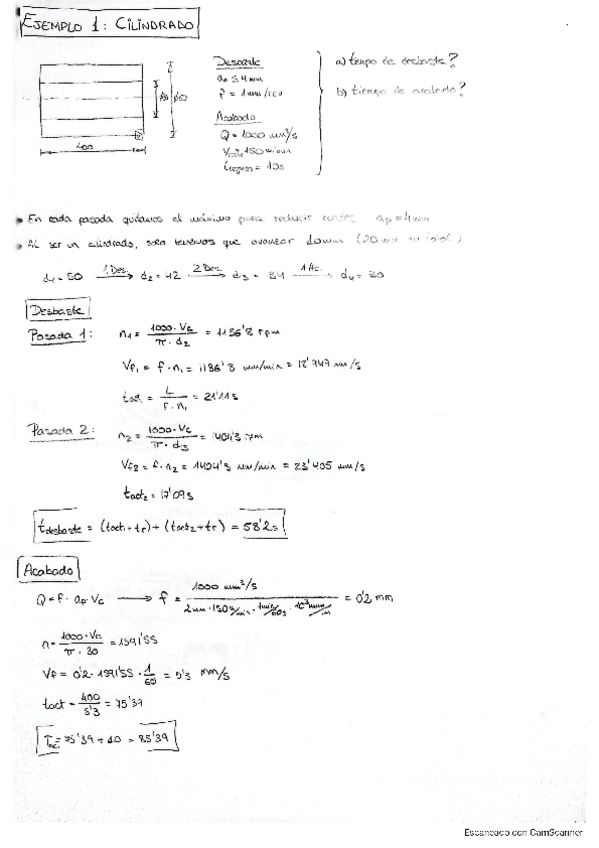 EJEMPLO 1: CILINDRADO
Desbaste
ap ≤ 4 mm
f = 1 mm/rev
Acabado
Q = 1000 mm³/s
Vcorte = 150 m/min
tregreso = 10s
a) tiempo de desbaste?
b) tiempo de acabado?
ø30 ø50
400
• En cada pasada quitamos el máximo para reducir costes ap = 4mm
• Al ser un cilindrado, solo tenemos que avanzar 10mm (20mm en total)
d1 = 50 1 Des. d2 = 42 2 Des. d3 = 34 1 Ac. d4 = 30
Desbaste
Pasada 1: n1 = 1000·Vc / π·d2 = 1136'8 rpm
Vf1 = f·n1 = 1136'8 mm/min = 18'947 mm/s
tact1 = L / f·n1 = 21'11s
Pasada 2: n2 = 1000·Vc / π·d3 = 1404'3 rpm
Vf2 = f·n2 = 1404'3 mm/min = 23'405 mm/s
tact2 = 17'09s
tdesbaste = (tact1 + tr) + (tact2 + tr) = 58'2s
Acabado
Q = f·ap·Vc → f = 1000 mm³/s / 2mm·150m/min·1min/60s·10³mm/m = 0'2 mm
n = 1000·Vc / π·30 = 1591'55
Vf = 0'2·1591'55·1/60 = 5'3 mm/s
tact = 400 / 5'3 = 75'39
Tac = 75'39 + 10 = 85'39
Escaneado con CamScanner